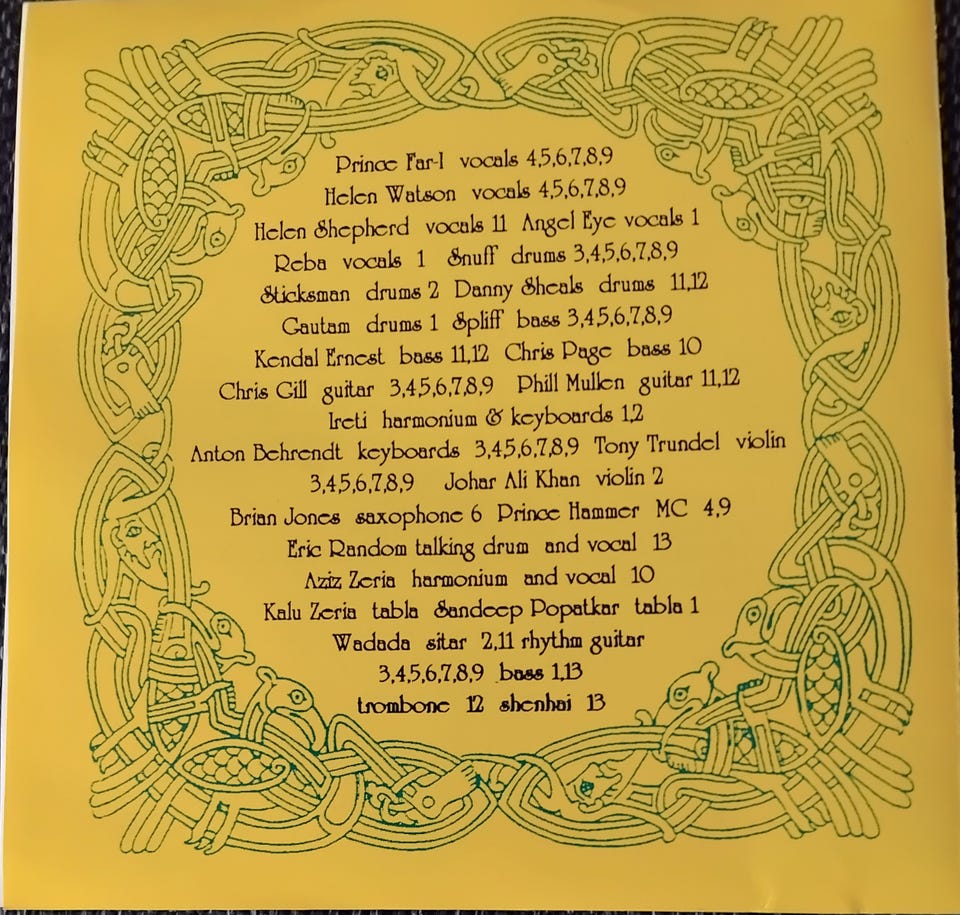 Prince Far-I vocals 4,5,6,7,8,9
Helen Watson vocals 4,5,6,7,8,9
Helen Shepherd vocals 11 Angel Eye vocals 1
Reba vocals 1 Snuff drums 3,4,5,6,7,8,9
Sticksman drums 2 Danny Sheals drums 11,12
Gautam drums 1 Spliff bass 3,4,5,6,7,8,9
Kendal Ernest bass 11,12 Chris Page bass 10
Chris Gill guitar 3,4,5,6,7,8,9 Phill Mullen guitar 11,12
Ireti harmonium & keyboards 1,2
Anton Behrendt keyboards 3,4,5,6,7,8,9 Tony Trundel violin
3,4,5,6,7,8,9 Johar Ali Khan violin 2
Brian Jones saxophone 6 Prince Hammer MC 4,9
Eric Random talking drum and vocal 13
Aziz Zeria harmonium and vocal 10
Kalu Zeria tabla Sandeep Popatkar tabla 1
Wadada sitar 2,11 rhythm guitar
3,4,5,6,7,8,9 bass 1,13
trombone 12 shenhai 13